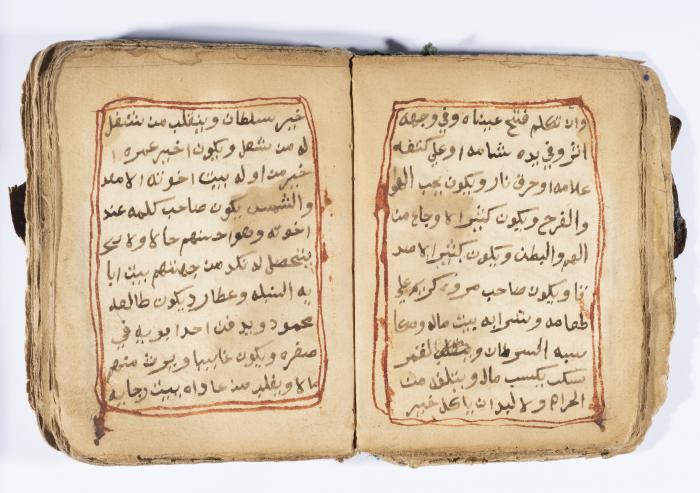 وان تكلم فتح عيناه وفي وجهه
اثر وفي يده شامه او علي كتفه
علامه او حرق نار ويكون يحب
والفرح ويكون كثير الاوجاع من
الهم والبطن ويكون كثير الاصد
قا ويكون صاحب مروه كريم علي
طعامه وشرابه بيت ماله ومعا
شه السرطان القمر
يكسب مال ويتلف من
الحرام ولا لبد ان ياكل خير
خير سلطان وينقلب من شغل
له من شغل ويكون اخير عمره ا
خير من اوله بيت اخوته الاسد
والشمس يكون صاحب كلمه عند
اخوته وهو احسنهم حالا ولا
يتحصل له نكد من جهتهم بيت ابا
يه السنبله وعطارد يكون طالعه
محمود ويدفن احد ابويه في
صغره ويكون غايبا ويرث منهم
مالا بيت رجايه